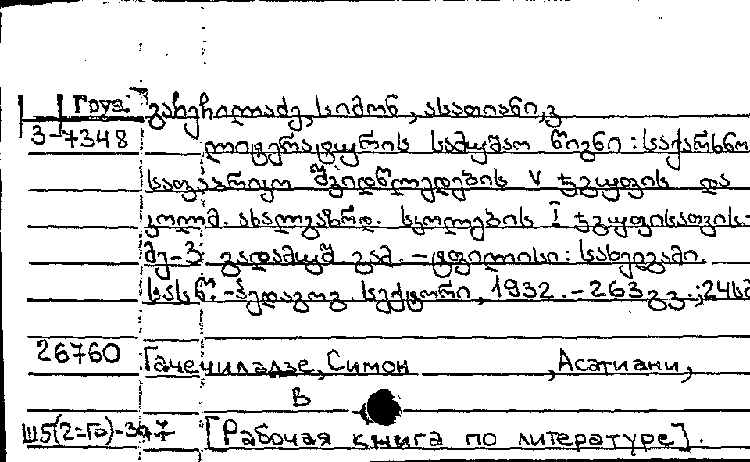 Груз. გაჩეჩილაძე, სიმონ, ასათიანი, ვ
3-7348 ლიტერატურის სამუშაო წიგნი : საქარხნო
საფაბრიკო შვიდწლედების V ჯგუფის და
კოლმ. ახალგაზრდ. სკოლების I ჯგუფისათვის.-
მე-3 გადამუშ. გამ. - ტფილისი : სახელგამი.
სასწ.-პედაგოგ. სექტორი, 1932. - 263 გვ.; 24სმ
26760 Гачечиладзе, Симон , Асатиани,
В
Ш5(2=Го)- [Рабочая книга по литературе].